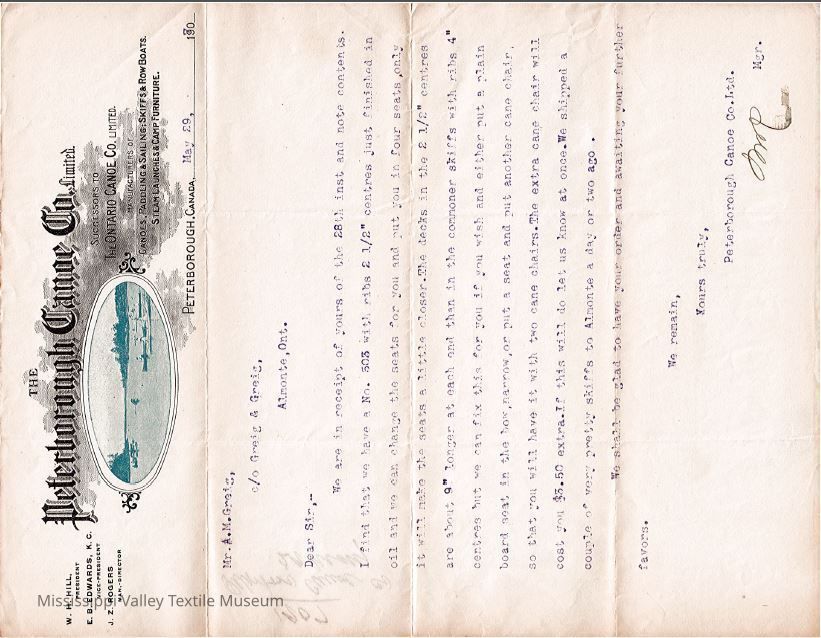 THE
Peterborough Canoe Co. Limited.
SUCCESSORS TO
THE ONTARIO CANOE CO. LIMITED.
MANUFACTURERS OF
CANOES, PADDLING & SAILING: SKIFFS & ROW BOATS.
STEAM LAUNCHES & CAMP FURNITURE.
W. H. HILL,
PRESIDENT
E. B. EDWARDS, K. C.
VICE-PRESIDENT
J. Z. ROGERS
MAN.-DIRECTOR
PETERBOROUGH, CANADA, May 29, 190
Mr. A.M.Greig,
c/o Greig & Greig,
Almonte,Ont.
Dear Sir,-
We are in receipt of yours of the 28th inst and note contents.
I find that we have a No. 503 with ribs 2 1/2" centres just finished in
oil and we can change the seats for you and put you in four seats,only
it will make the seats a little closer.The decks in the 2 1/2" centres
are about 9" longer at each end than in the commoner skiffs with ribs 4"
centres but we can fix this for you if you wish and either put a plain
board seat in the bow,narrow,or put a seat and put another cane chair,
so that you will have it with two cane chairs.The extra cane chair will
cost you $3.50 extra.If this will do let us know at once.We shipped a
couple of very pretty skiffs to Almonte a day or two ago .
We shall be glad to have your order and awaiting your further
favors.
We remain,
Yours truly,
Peterborough Canoe Co.Ltd.
Mgr.
Mississippi Valley Textile Museum